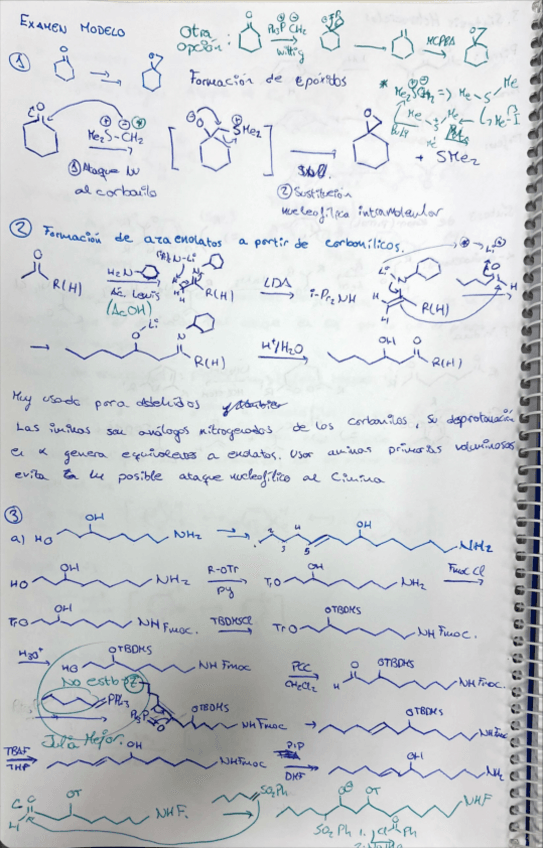 EXAMEN MODELO
Otra opción: Ph3P CH2 wittig MCPBA
①
Formación de epóxidos
Me2S-CH2
SMe2
+ SMe2
① Ataque Nu al carbonilo
② Sustitución nucleofílica intramolecular
② Formación de azaenolatos a partir de carbonílicos.
R(H) H2N Ác. Lewis (AcOH) R(H) LDA i-Pr2NH R(H)
R(H) H+/H2O OH O R(H)
Muy usado para aldehídos
Las iminas son análogos nitrogenados de los carbonilos, su deprotonación
en α genera equivalentes a enolatos. Usar aminas primarias voluminosas
evita posible ataque nucleofílico al C imina
③
a) HO OH NH2 OH NH2
HO OH NH2 R-OTr Py TrO OH NH2 Fmoc Cl
TrO OH NH Fmoc. TBDMSCl TrO OTBDMS NH Fmoc.
H3O+ HO OTBDMS NH Fmoc PCC CH2Cl2 H O OTBDMS NH Fmoc.
No estab
PPh3 OTBDMS NH Fmoc OTBDMS NH Fmoc
Juliá Mejor.
TBAF THF OH NHFmoc PiP DMF OH NH2
OT NHF. SO2Ph OT NHF
SO2Ph 1. Cl Ph